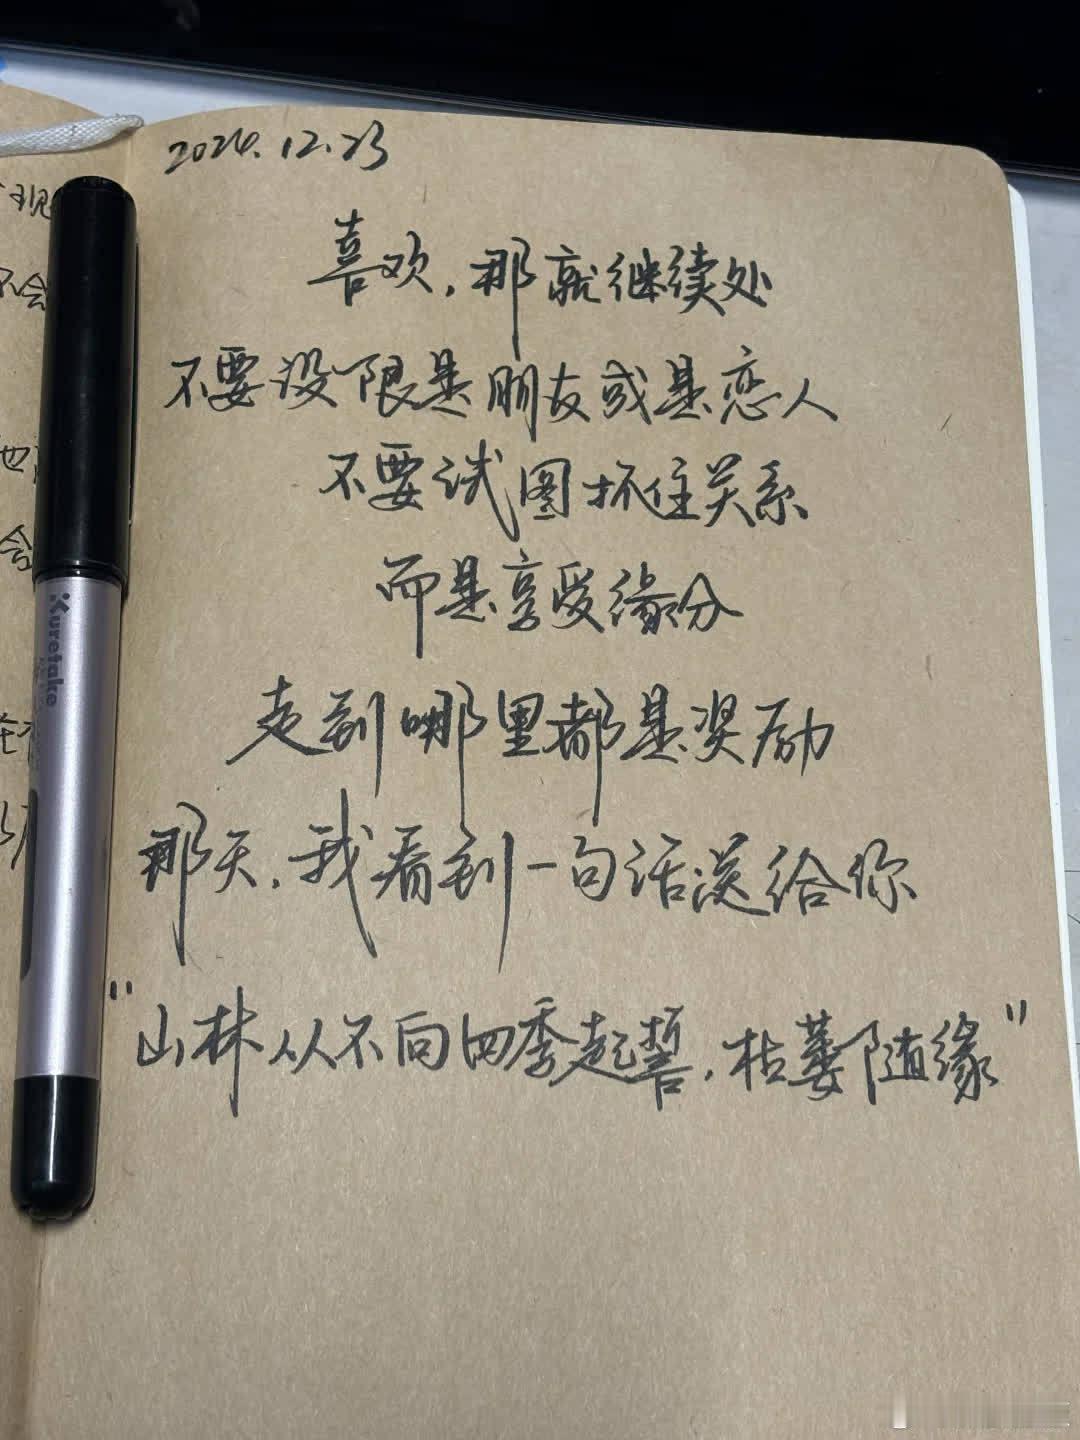 2024.12.23
喜欢，那就继续处
不要设限是朋友或是恋人
不要试图抓住关系
而是享受缘分
走到哪里都是奖励
那天，我看到一句话送给你
"山林从不向四季起誓，枯萎随缘"
现
不会
也
会
Kuretake